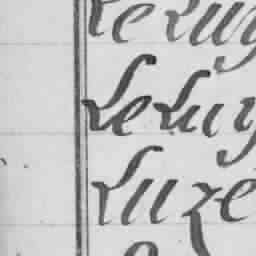 Le Luy
Le Luy
Luze